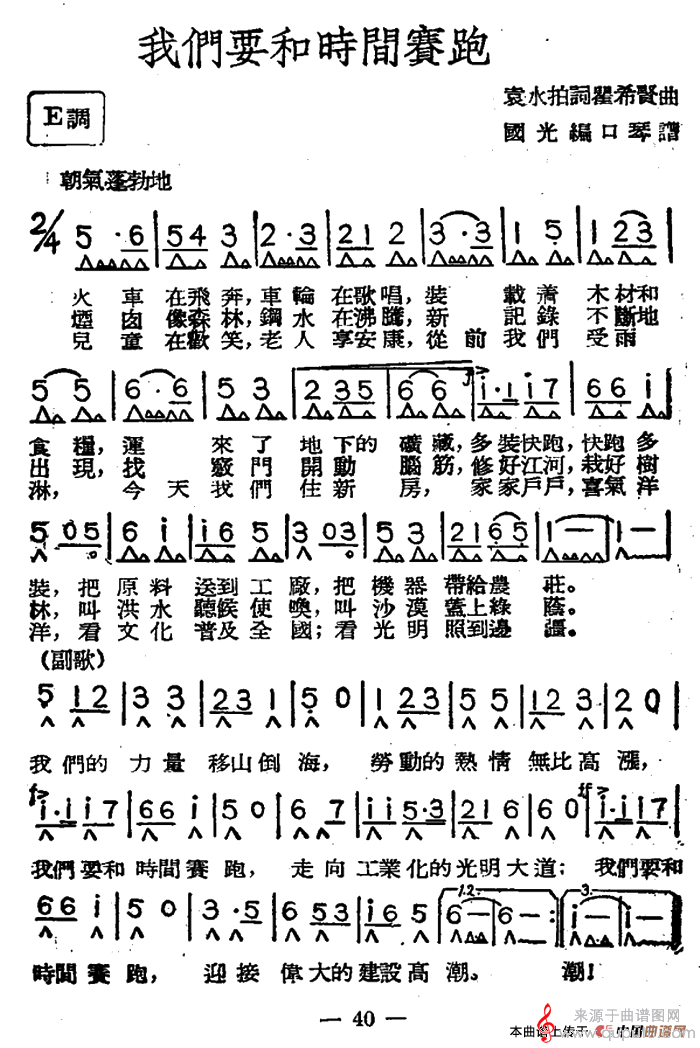 我們要和時間賽跑
E調
袁水拍詞瞿希賢曲
國光編口琴譜
朝氣蓬勃地
2/4 5 ·6 | 54 3 | 2·3 | 21 2 | 3·3 | 1 5 | 1 23 |
火車在飛奔,車輪在歌唱,裝載着木材和
煙囪像森林,鋼水在沸騰,新記錄不斷地
兒童在歡笑,老人享安康,從前我們受雨
5 5 | 6·6 | 5 3 | 2 35 | 6 6 | i·i i7 | 66 i |
食糧,運來了地下的礦藏,多裝快跑,快跑多
出現,找竅門開動腦筋,修好江河,栽好樹
淋,今天我們住新房,家家戶戶,喜氣洋
5 05 | 6 i | i6 5 | 3 03 | 5 3 | 21 65 | 1 — | 1 — |
裝,把原料送到工廠,把機器帶給農莊。
林,叫洪水聽候使喚,叫沙漠蓋上綠蔭。
洋,看文化普及全國;看光明照到邊疆。
(副歌)
5 12 | 3 3 | 23 1 | 5 0 | 1 23 | 5 5 | 12 3 | 2 0 |
我們的力量移山倒海,勞動的熱情無比高漲,
f> i·i i7 | 66 i | 5 0 | 6 7 | i 5·3 | 21 6 | 6 0 | ff> i·i i7 |
我們要和時間賽跑,走向工業化的光明大道;我們要和
66 i | 5 0 | 3 ·5 | 6 53 | i6 5 | 1.2. 6 — | 6 — :| 3. i — | i — |
時間賽跑,迎接偉大的建設高潮。潮!
— 40 —
来源于曲谱图网
本曲谱上传于 中国曲谱网